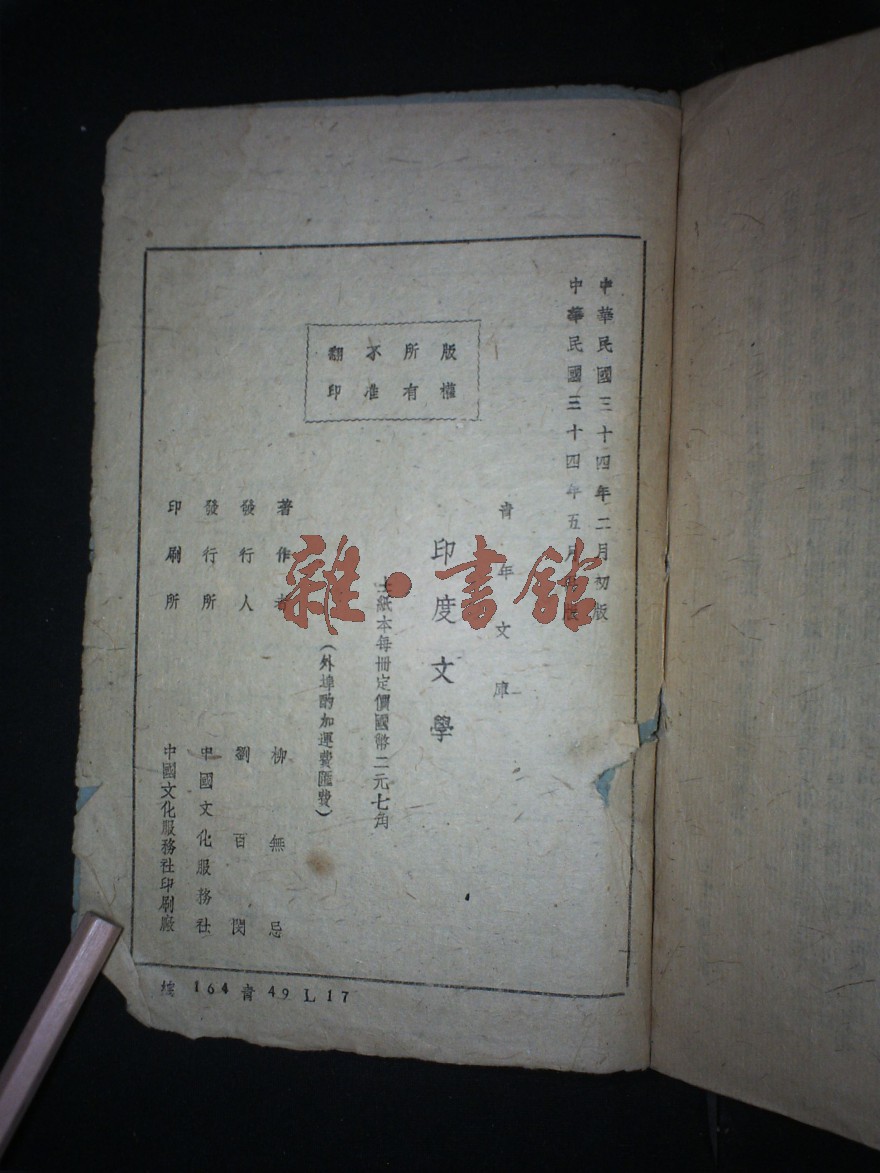 中華民國三十四年二月初版
中華民國三十四年五月 版
青年文庫
印度文學
土紙本每冊定價國幣二元七角
(外埠酌加運費匯費)
版權
所有
不准
翻印
著作者 柳無忌
發行人 劉百閔
發行所 中國文化服務社
印刷所 中國文化服務社印刷廠
164 青 49 L 17
雜·書館